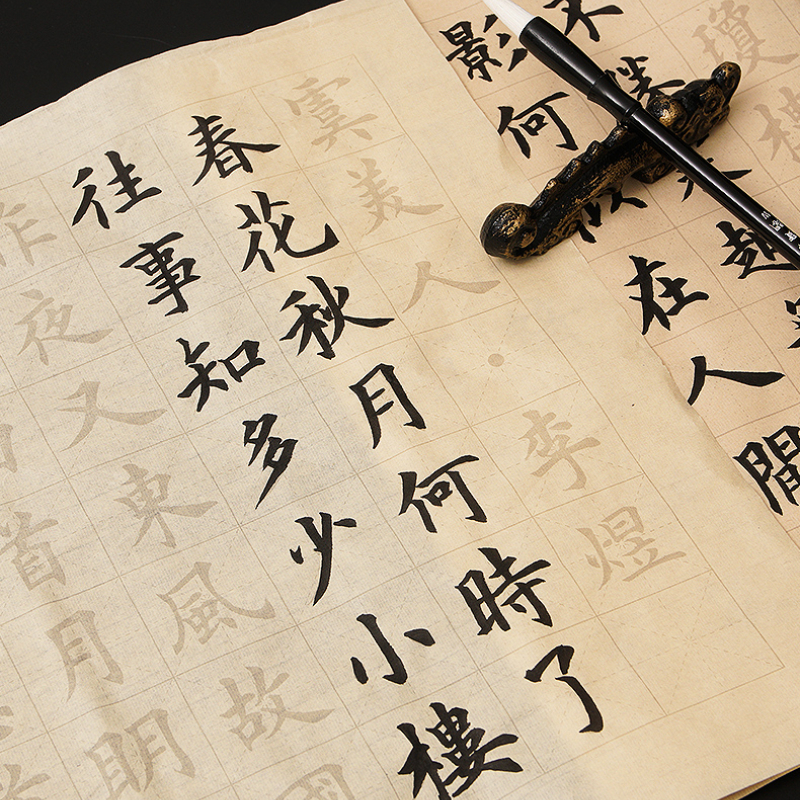 瓊樓
不勝起
影何似在人間
虞美人·李煜
春花秋月何時了
往事知多少小樓
昨夜又東風故國
首月明